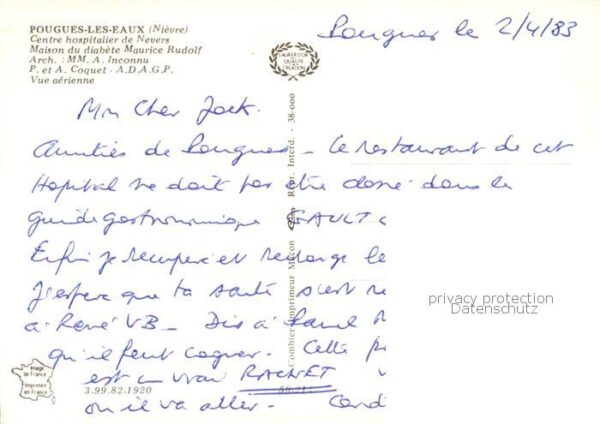 POUGUES-LES-EAUX (Nièvre)
Centre hospitalier de Nevers
Maison du diabète Maurice Rudolf
Arch. : MM. A. Inconnu
P. et A. Coquet - A.D.A.G.P.
Vue aérienne
LAURIER D'OR
DE LA
QUALITÉ
CRÉATION
Pougues le 2/4/83
Mon Cher Jack.
Amitiés de Pougues - Le restaurant de cet
Hopital ne doit pas être classé dans le
guide gastronomique GAULT &
Enfin je récupère et recharge le
J'espère que ta santé s'est
a René VB - Dis à
qu'il faut cogner. Cette
est un vrai
où il va aller. Cord
Combier Imprimeur Mâcon
Repr. Interd. - 38-000
privacy protection
Datenschutz
Image
de France
Imprimée
en France
3.99.82.1920